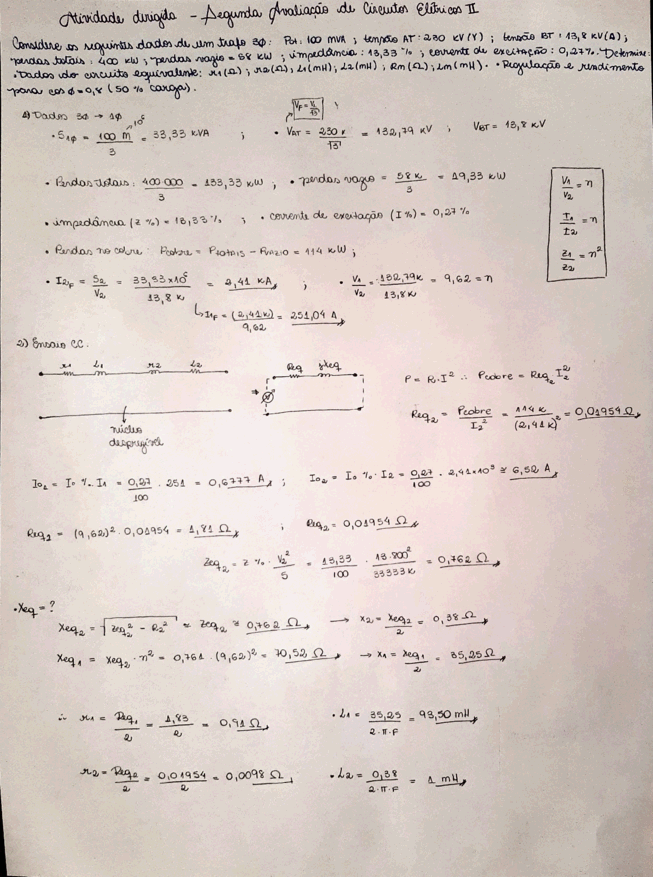 Atividade dirigida - Segunda Avaliação de Circuitos Elétricos II
Considere os seguintes dados de um trafo 3ϕ: Pot: 100 MVA; tensão AT: 230 kV(Y); tensão BT: 13,8 kV(Δ);
perdas totais: 400 kW; perdas vazio = 58 kW; impedância: 13,33 %; corrente de excitação: 0,27%. Determine:
• Dados do circuito equivalente: r1(Ω); r2(Ω); L1(mH); L2(mH); Rm(Ω); Lm(mH). • Regulação e rendimento
para cos ϕ = 0,8 (50 % carga).
VF = VL/√3
1) Dados 3ϕ → 1ϕ
• S1ϕ = 100 M/3 = 33,33 KVA ; • VAT = 230 K/√3 = 132,79 KV ; VBT = 13,8 KV
10⁶
• Perdas totais: 400.000/3 = 133,33 KW ; • perdas vazio = 58 K/3 = 19,33 KW
• impedância (Z %) = 13,33 % ; • corrente de excitação (I%) = 0,27 %
• Perdas no cobre: Pcobre = Ptotais - Pvazio = 114 KW ;
V1/V2 = n
I1/I2 = n
Z1/Z2 = n²
• I2F = S2/V2 = 33,33 x 10⁶/13,8 K = 2,41 KA ; • V1/V2 = 132,79K/13,8K = 9,62 = n
↳ I1F = (2,41K)/9,62 = 251,04 A
2) Ensaio CC:
r1 L1 r2 L2
Req jXeq
núcleo
desprezível
P = R.I² ∴ Pcobre = Req2 I2²
Req2 = Pcobre/I2² = 114 K/(2,41 K)² = 0,01954 Ω
Io1 = I0 %. I1 = 0,27/100 . 251 = 0,6777 A ; Io2 = I0 %. I2 = 0,27/100 . 2,41×10³ ≅ 6,52 A
Req1 = (9,62)² . 0,01954 = 1,81 Ω ; Req2 = 0,01954 Ω
Zeq2 = Z %. V2²/S = 13,33/100 . 13.800²/33333 K = 0,762 Ω
• Xeq = ?
Xeq2 = √Zeq2² - R2² ≈ Zeq2 ≅ 0,762 Ω → X2 = Xeq2/2 = 0,38 Ω
Xeq1 = Xeq2 . n² = 0,761 . (9,62)² = 70,52 Ω → X1 = Xeq1/2 = 35,25 Ω
∴ r1 = Req1/2 = 1,83/2 = 0,91 Ω • L1 = 35,25/2.π.F = 93,50 mH
r2 = Req2/2 = 0,01954/2 = 0,0098 Ω • L2 = 0,38/2.π.F = 1 mH